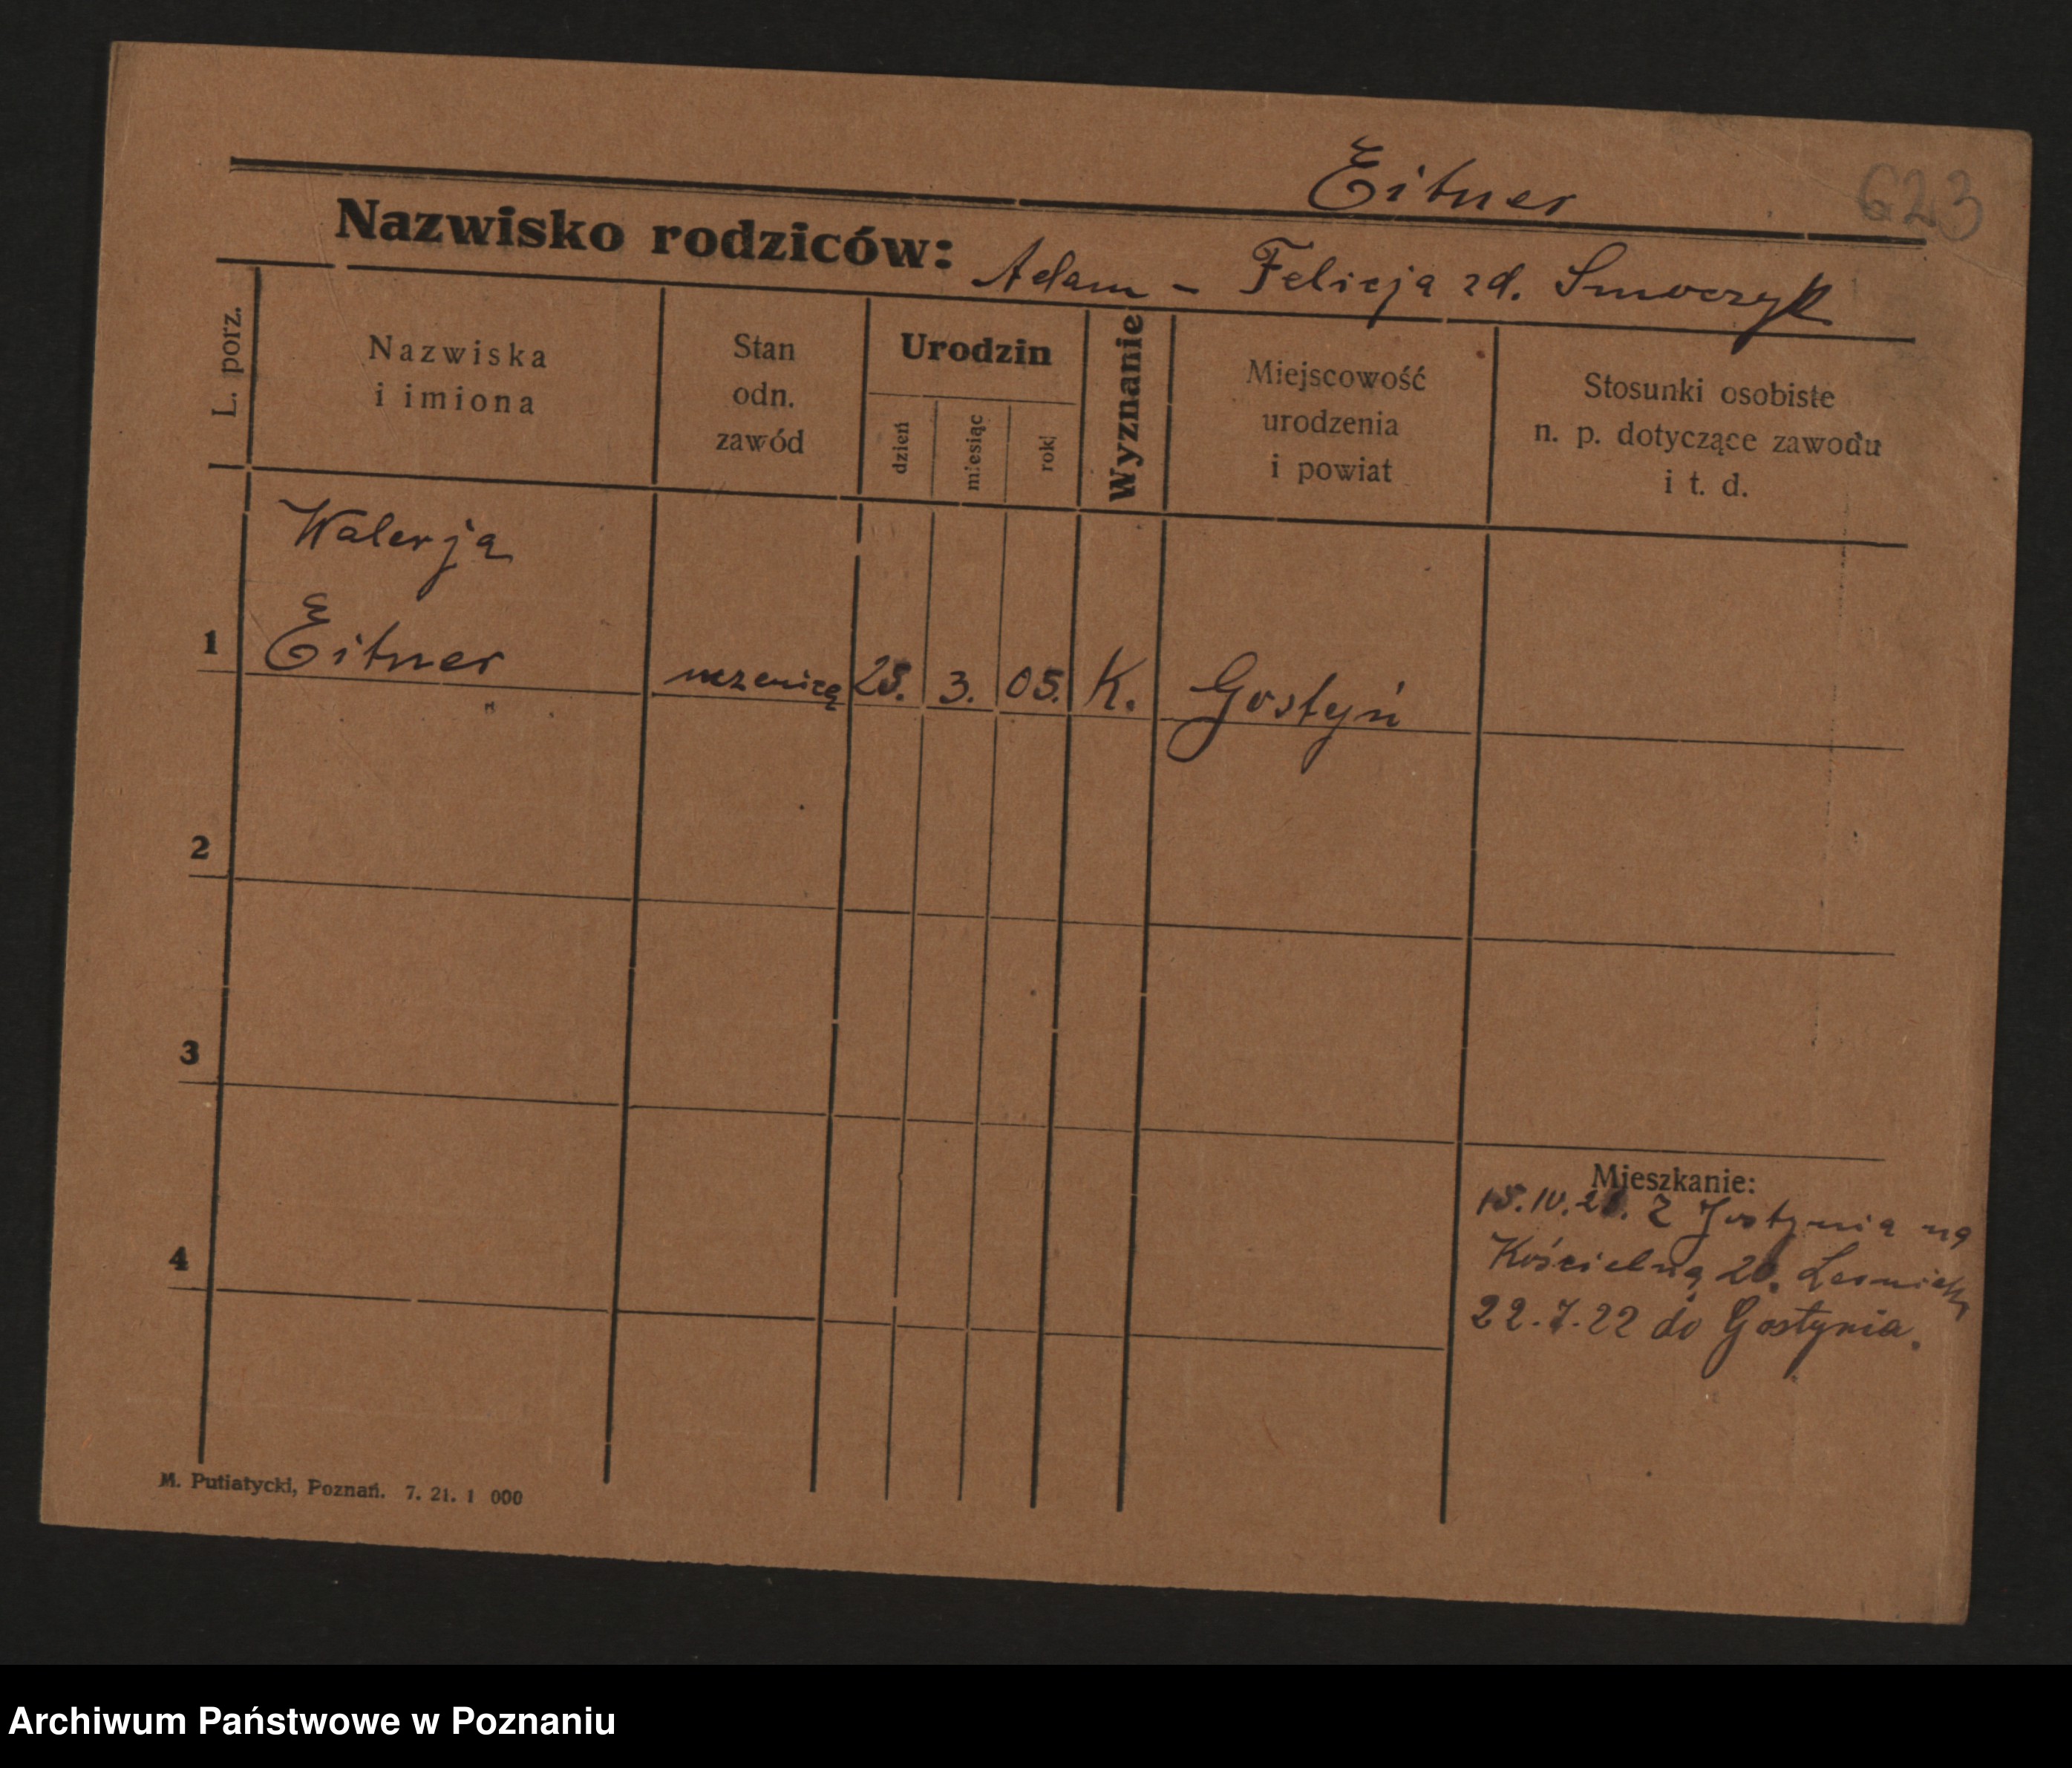 Eitner
623
Nazwisko rodziców: Adam - Felicja zd. Smoczyk
L. porz.
Nazwiska
i imiona
Stan
odn.
zawód
Urodzin
dzień
miesiąc
rok
Wyznanie
Miejscowość
urodzenia
i powiat
Stosunki osobiste
n. p. dotyczące zawodu
i t. d.
Walerja
1 Eitner uczenica 25. 3. 05. K. Gostyń
2
3
4
Mieszkanie:
15.IV.21. Z Gostynia na
Kościelną 20.
22.7.22 do Gostynia.
M. Putiatycki, Poznań. 7. 21. 1 000
Archiwum Państwowe w Poznaniu